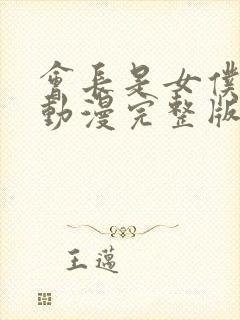 會長是女僕
動漫完整版
王邁